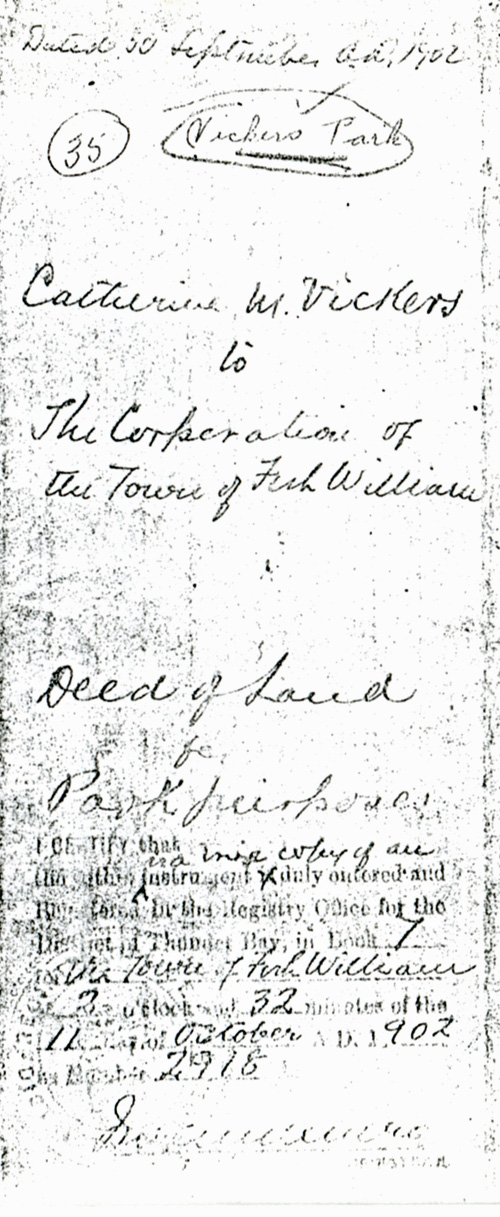 Dated 30 September A.D. 1902
35
Vickers Park
Catherine M. Vickers
to
The Corporation of
the Town of Fort William
Deed of Land
for
Park purposes
I CERTIFY that
is a true copy of an
the within instrument duly entered and
Registered in the Registry Office for the
District of Thunder Bay, in Book 7
for the Town of Fort William
3 o'clock and 32 minutes of the
11 day of October A.D. 1902
as Number 2918